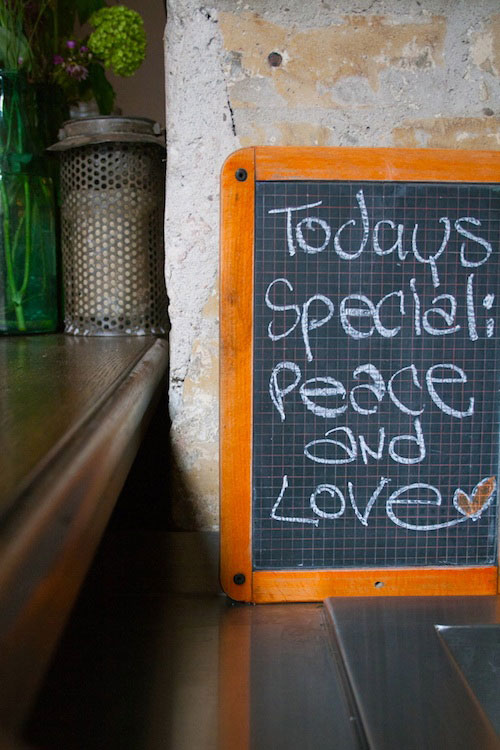 Todays
Special:
Peace
and
Love